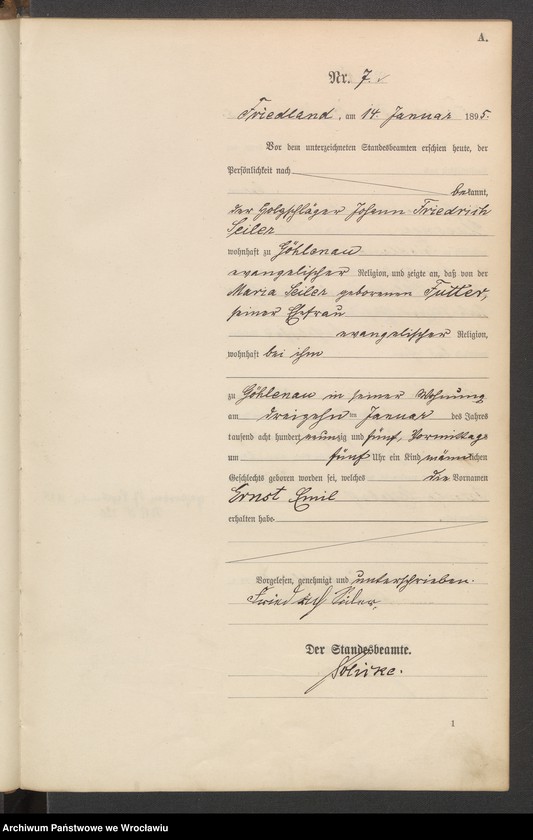 A.
Nr. 7.
Friedland, am 14 Januar 1895.
Vor dem unterzeichneten Standesbeamten erschien heute, der
Persönlichkeit nach
bekannt,
der Johann Friedrich
Seiler
wohnhaft zu Göhlenau
evangelischer Religion, und zeigte an, daß von der
Maria Seiler geborenen Futter,
seiner Ehefrau
evangelischer Religion,
wohnhaft bei ihm
zu Göhlenau in seiner Wohnung
am dreizehn ten Januar des Jahres
tausend acht hundert neunzig und fünf, Vormittags
um fünf Uhr ein Kind männlichen
Geschlechts geboren worden sei, welches die Vornamen
Ernst Emil
erhalten habe
Vorgelesen, genehmigt und unterschrieben.
Friedrich Seiler.
Der Standesbeamte.
1
Archiwum Państwowe we Wrocławiu